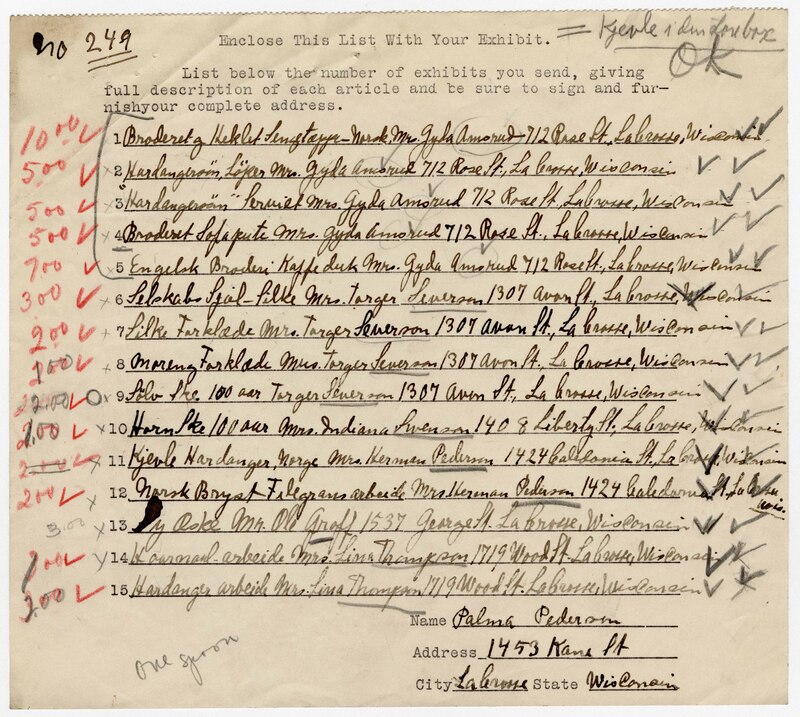 No 249
Kjevle i den box
OK
Enclose This List With Your Exhibit.
List below the number of exhibits you send, giving
full description of each article and be sure to sign and fur-
nishyour complete address.
10.00 1 Broderet og Heklet Norsk, Mrs. Gyda Amsrud 712 Rose St., La Crosse, Wisconsin
5.00 x 2 Hardangersöm, Löper Mrs. Gyda Amsrud 712 Rose St., La Crosse, Wisconsin
5.00 x 3 "Hardangersöm" Serviet Mrs. Gyda Amsrud 712 Rose St., La Crosse, Wisconsin
5.00 4 Broderet Sofapute Mrs. Gyda Amsrud 712 Rose St., La Crosse, Wisconsin
7.00 x 5 Engelsk Broderi Kaffe duk Mrs. Gyda Amsrud 712 Rose St., La Crosse, Wisconsin
3.00 x 6 Selskabs Sjal-Silke Mrs. Torger Severson 1307 Avon St., La Crosse, Wisconsin
2.00 x 7 Silke Forklæde Mrs. Torger Severson 1307 Avon St., La Crosse, Wisconsin
x 8 Forklæde Mrs. Torger Severson 1307 Avon St., La Crosse, Wisconsin
x 9 Sölv Ske 100 aar Torger Severson 1307 Avon St., La Crosse, Wisconsin
x 10 Horn Ske 100 aar Mrs. Indiana Swenson 1408 Liberty St., La Crosse, Wisconsin
x 11 Kjevle Hardanger, Norge Mrs. Herman Pederson 1424 Caledonia St., La Crosse, Wisconsin
2.00 x 12 Norsk Bryst-Filegrans arbeide Mrs. Herman Pederson 1424 Caledonia St., La Crosse
Wis.
3.00 x 13 æske Mr. Ole Groff 1537 George St. La Crosse, Wisconsin
x 14 arbeide Mrs. Lina Thompson 1719 Wood St. La Crosse, Wisconsin
x 15 Hardanger arbeide Mrs. Lina Thompson, 1719 Wood St. La Crosse, Wisconsin
Name Palma Pederson
one spoon
Address 1453 Kane St
City La Crosse State Wisconsin